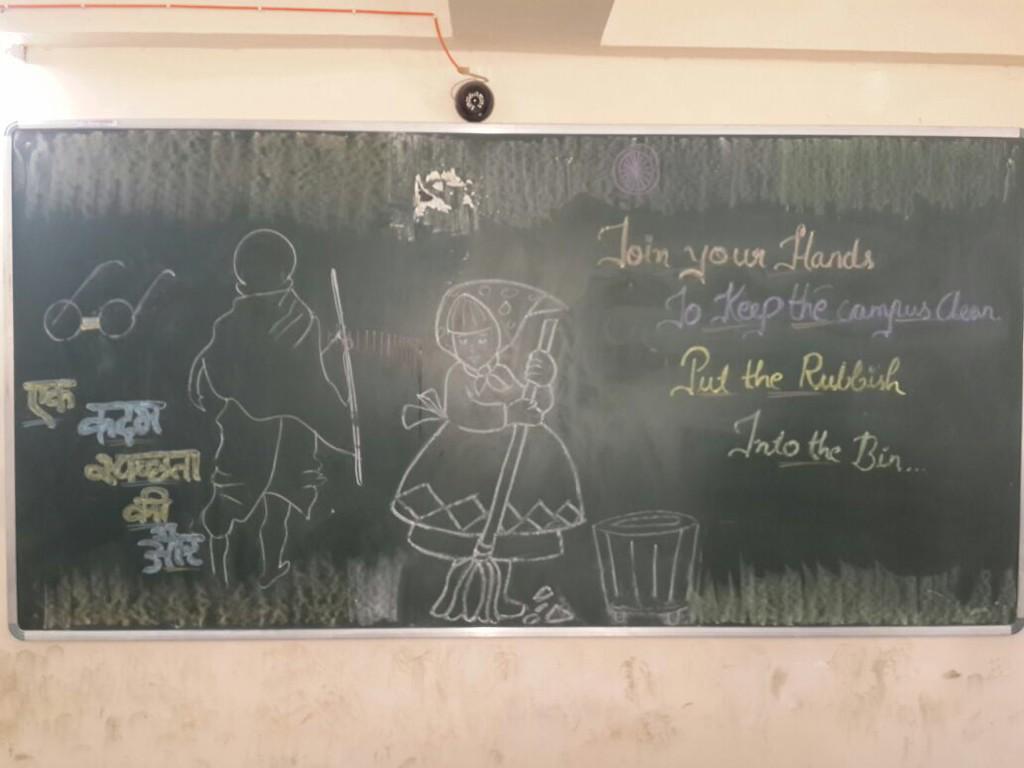 एक
कदम
स्वच्छता
की
और
Join your Hands
To Keep the campus clean
Put the Rubbish
Into the Bin...